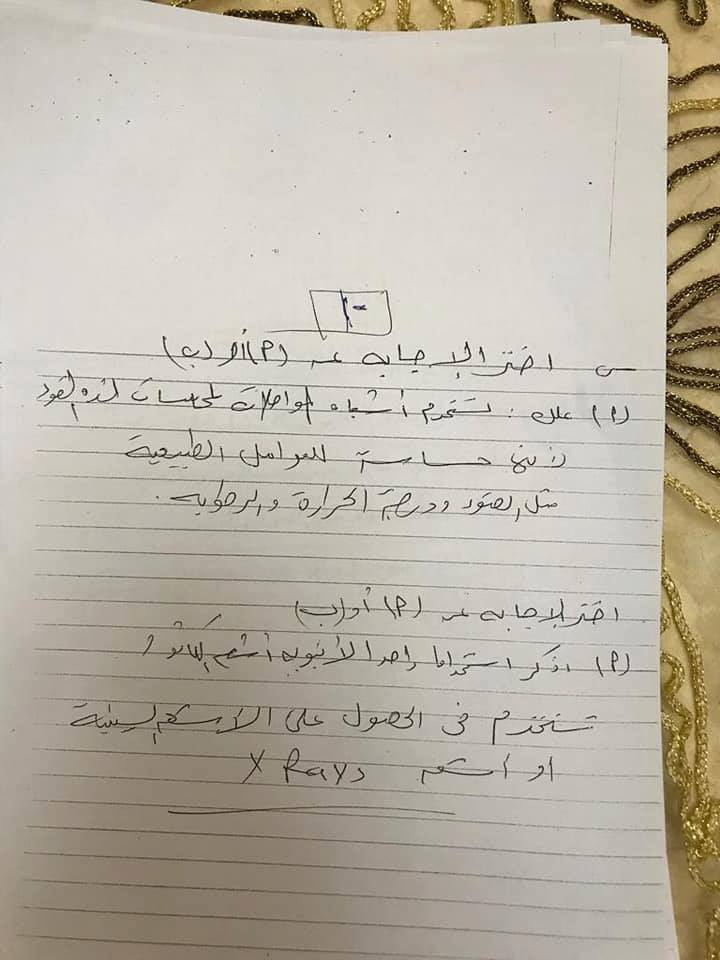 ١٠
س اختر الإجابه عن (أ) أو (ب)
(أ) علل : تستخدم أشباه الموصلات كمحسات لشدة الضوء
لأنها حساسة للعوامل الطبيعية
مثل الضوء ودرجة الحرارة والرطوبه .
اختر الإجابه عن (أ) أو (ب)
(أ) اذكر استخداما واحدا لأنبوبه أشعه الكاثود
تستخدم فى الحصول على الأشعه السينية
او اشعه X Rays